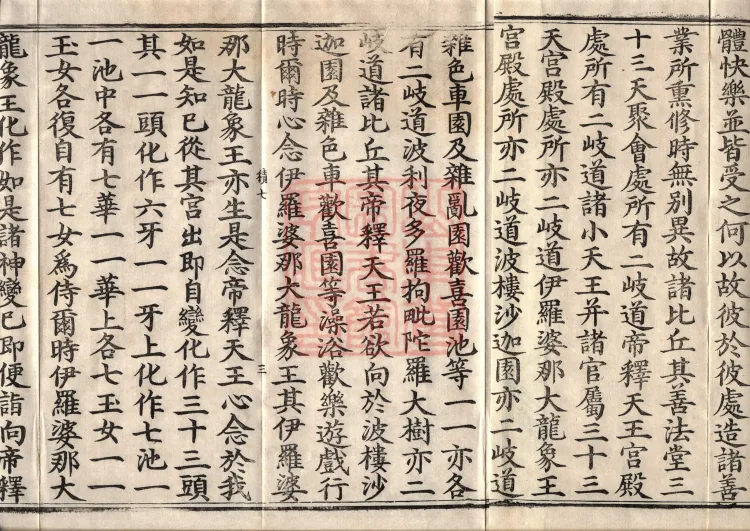 體快樂並皆受之何以故彼於彼處造諸善
業所熏修時無別異故諸比丘其善法堂三
十三天聚會處所有二岐道帝釋天王宮殿
處所有二岐道諸小天王并諸官屬三十三
天宮殿處所亦二岐道伊羅婆那大龍象王
宮殿處所亦二岐道波樓沙迦園亦二岐道
雜色車園及雜亂園歡喜園池等一一亦各
有二岐道波利夜多羅拘毗陀羅大樹亦二
岐道諸比丘其帝釋天王若欲向於波樓沙
迦園及雜色車歡喜園等澡浴歡樂遊戲行
時爾時心念伊羅婆那大龍象王其伊羅婆
積七 三
那大龍象王亦生是念帝釋天王心念於我
如是知已從其宮出即自變化作三十三頭
其一一頭化作六牙一一牙上化作七池一
一池中各有七華一一華上各七玉女一一
玉女各復自有七女為侍爾時伊羅婆那大
龍象王化作如是諸神變已即便詣向帝釋